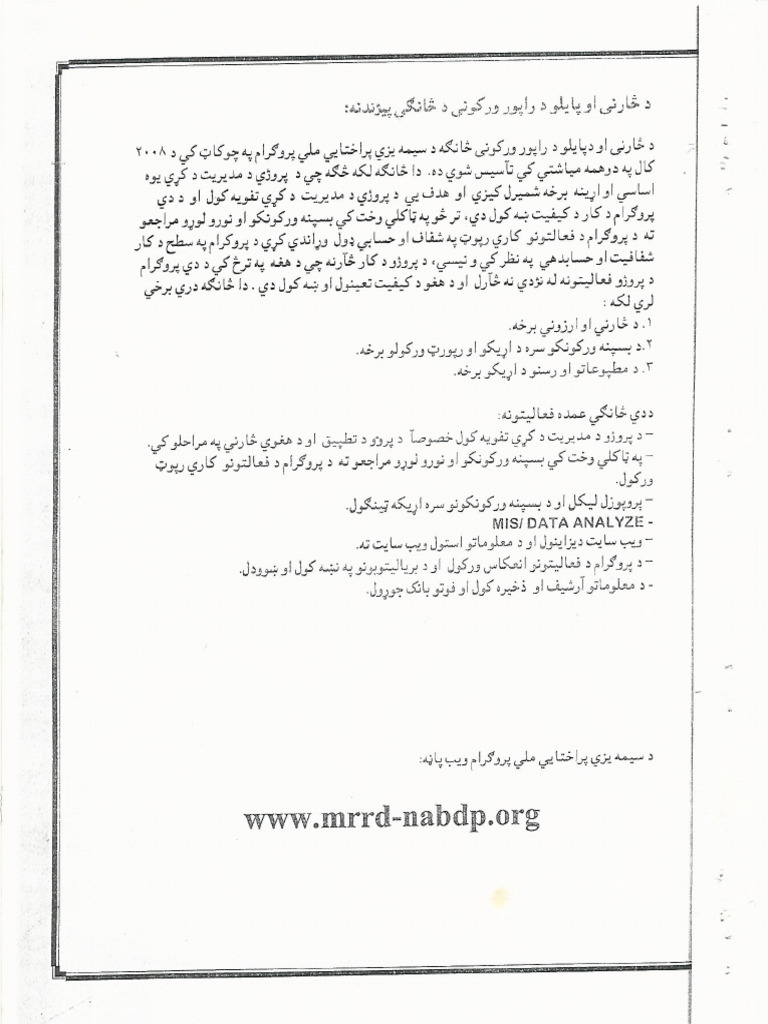 د څارنی او پایلو د راپور ورکونې د څانګې پیژندنه:
د څارنی او دپایلو د راپور ورکونی څانګه د سیمه یزي پراختیایي ملي پروګرام په چوکاټ کي د ۲۰۰۸
کال په دوهمه میاشتي کي تأسیس شوي ده. دا څانګه لکه څګه چي د پروژي د مدیریت د کړي یوه
اساسي او اړینه برخه شمیرل کیزي او هدف یي د پروژي د مدیریت د کړي تفویه کول او د دي
پروګرام د کار د کیفیت ښه کول دي، تر څو په ټاکلي وخت کي بسپنه ورکونکو او نورو لوړو مراجعو
ته د پروګرام د فعالتونو کاري رپوټ په شفاف او حسابي ډول وړاندي کړي د پروکرام په سطح د کار
شفافیت او حسابدهي په نظر کي ونیسي، د پروژو د کار څارنه چي د هغه په ترڅ کي د دي پروګرام
د پروژو فعالیتونه له نژدي نه څارل او د هغو د کیفیت تعینول او ښه کول دي . دا څانګه دري برخي
لري لکه :
۱. د څارني او ارزوني برخه.
۲.د بسپنه ورکونکو سره د اړیکو او رپورټ ورکولو برخه.
۳. د مطبوعاتو او رسنو د اړیکو برخه.
ددي څانګي عمده فعالیتونه:
– د پروژو د مدیریت د کړي تفویه کول خصوصاً د پروژو د تطبیق او د هغوي څارني په مراحلو کي.
– په ټاکلي وخت کي بسپنه ورکونکو او نورو لوړو مراجعو ته د پروګرام د فعالتونو کاري رپوټ
ورکول.
– پروپوزل لیکل او د بسپنه ورکونکونو سره اړیکه ټینګول.
- MIS/ DATA ANALYZE
– ویب سایت دیزاینول او د معلوماتو استول ویب سایت ته.
– د پروګرام د فعالیتونو انعکاس ورکول او د بریالیتوبونو په نښه کول او ښوودل.
- د معلوماتو آرشیف او ذخیره کول او فوتو بانک جوړول.
د سیمه یزي پراختیایي ملي پروګرام ویب پاڼه:
www.mrrd-nabdp.org